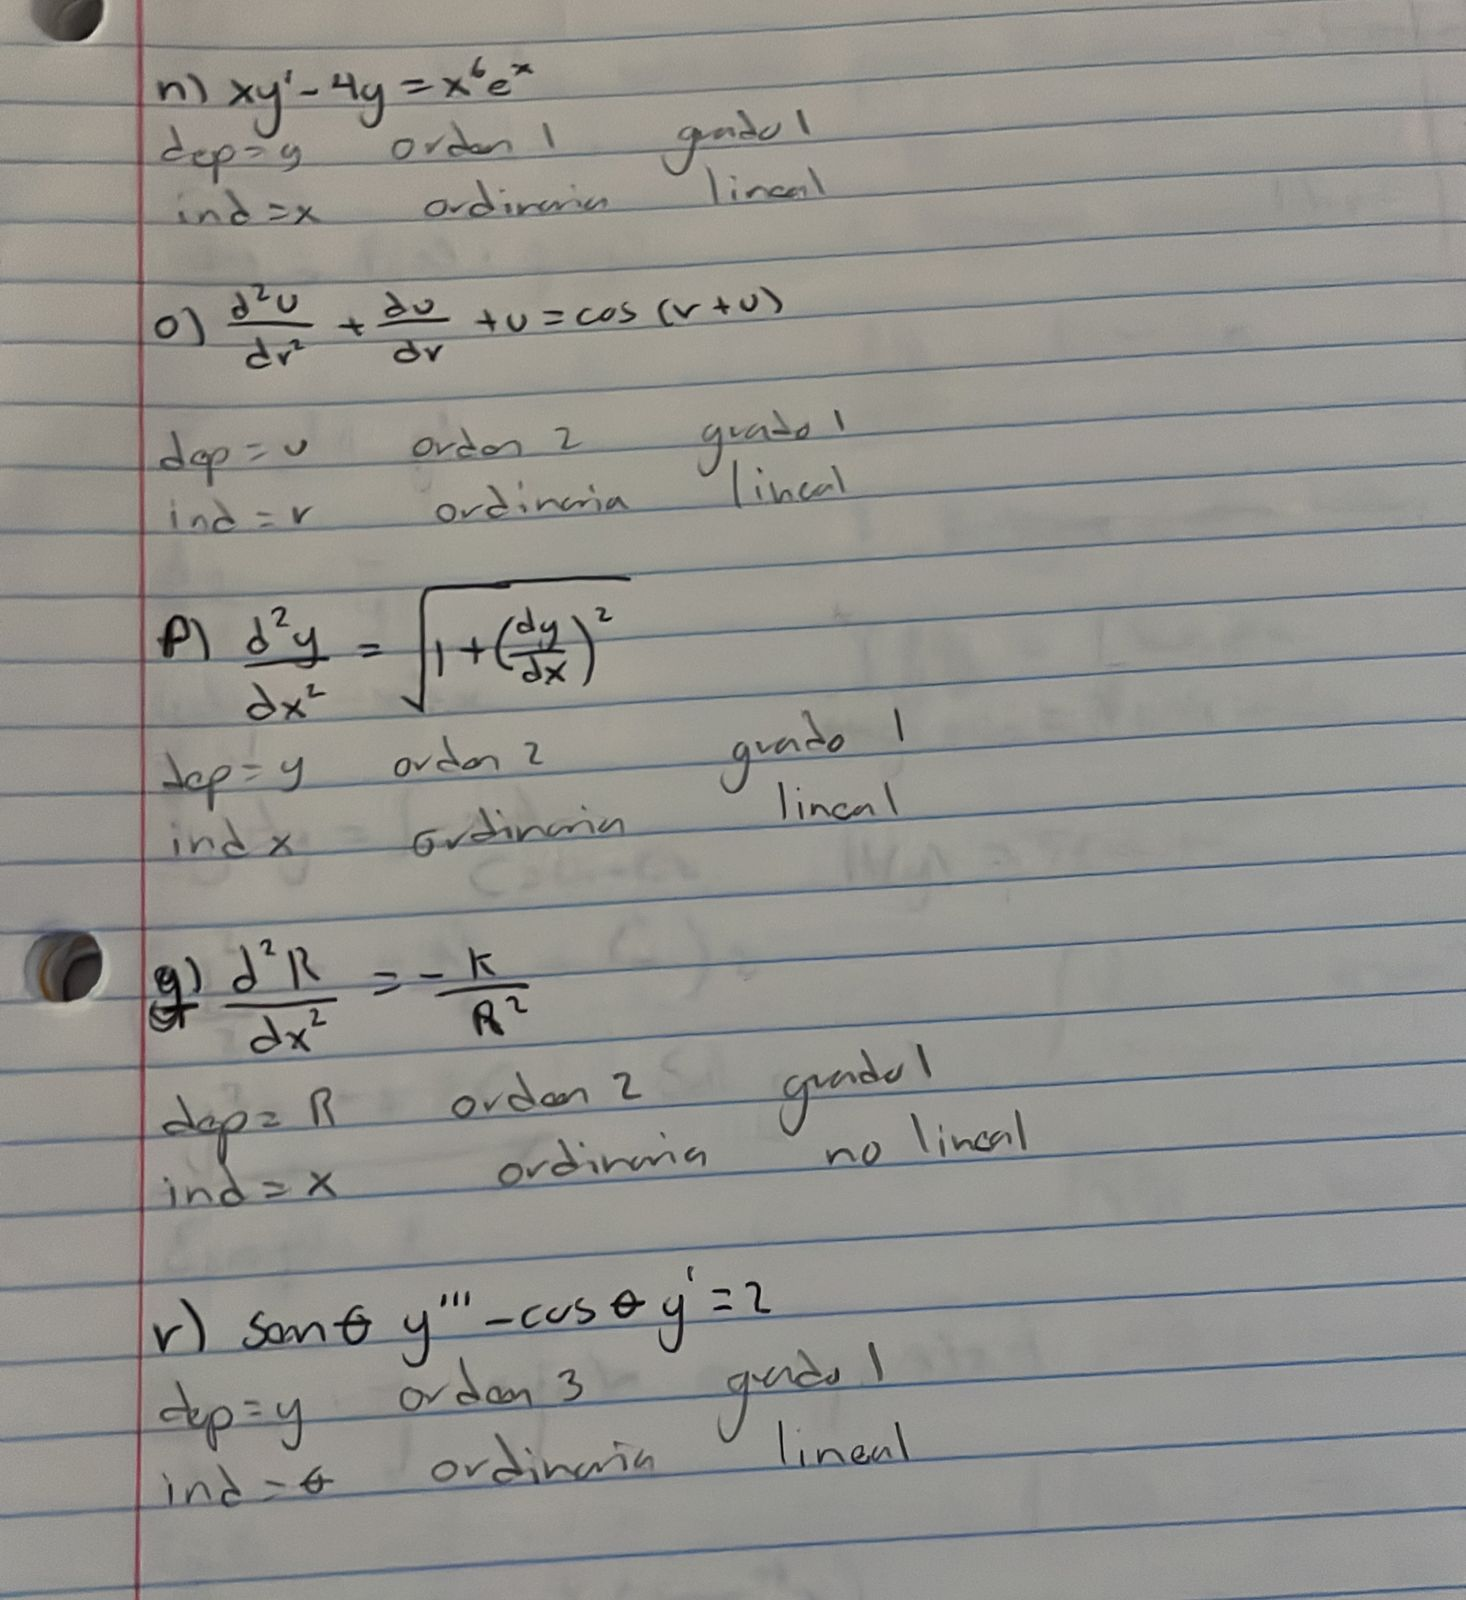 n) xy' - 4y = x⁶eˣ
dep = y orden 1 grado 1
ind = x ordinaria lineal
o) d²u/dr² + du/dr + u = cos (r + u)
dep = u orden 2 grado 1
ind = r ordinaria lineal
p) d²y/dx² = √(1 + (dy/dx)²)
dep = y orden 2 grado 1
ind x ordinaria lineal
q) d²R/dx² = - k/R²
dep = R orden 2 grado 1
ind = x ordinaria no lineal
r) sen θ y''' - cos θ y' = 2
dep = y orden 3 grado 1
ind = θ ordinaria lineal